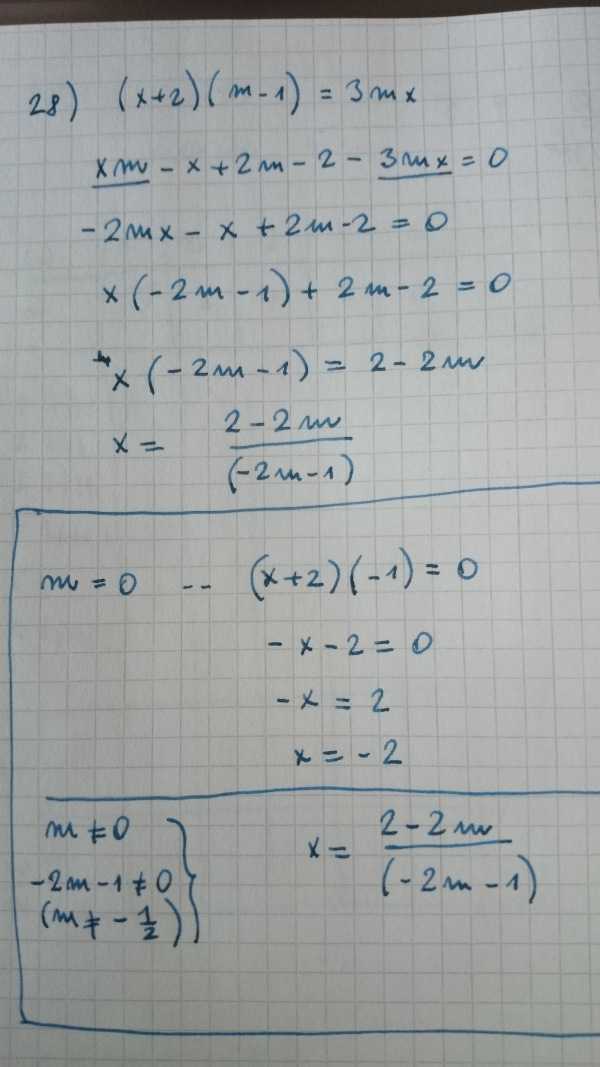 28) (x+2)(m-1) = 3mx
xm - x + 2m - 2 - 3mx = 0
-2mx - x + 2m - 2 = 0
x(-2m - 1) + 2m - 2 = 0
x(-2m - 1) = 2 - 2m
x = (2 - 2m)/(-2m - 1)
m = 0 -- (x+2)(-1) = 0
-x - 2 = 0
-x = 2
x = -2
m ≠ 0
-2m - 1 ≠ 0
(m ≠ -1/2)
x = (2 - 2m)/(-2m - 1)